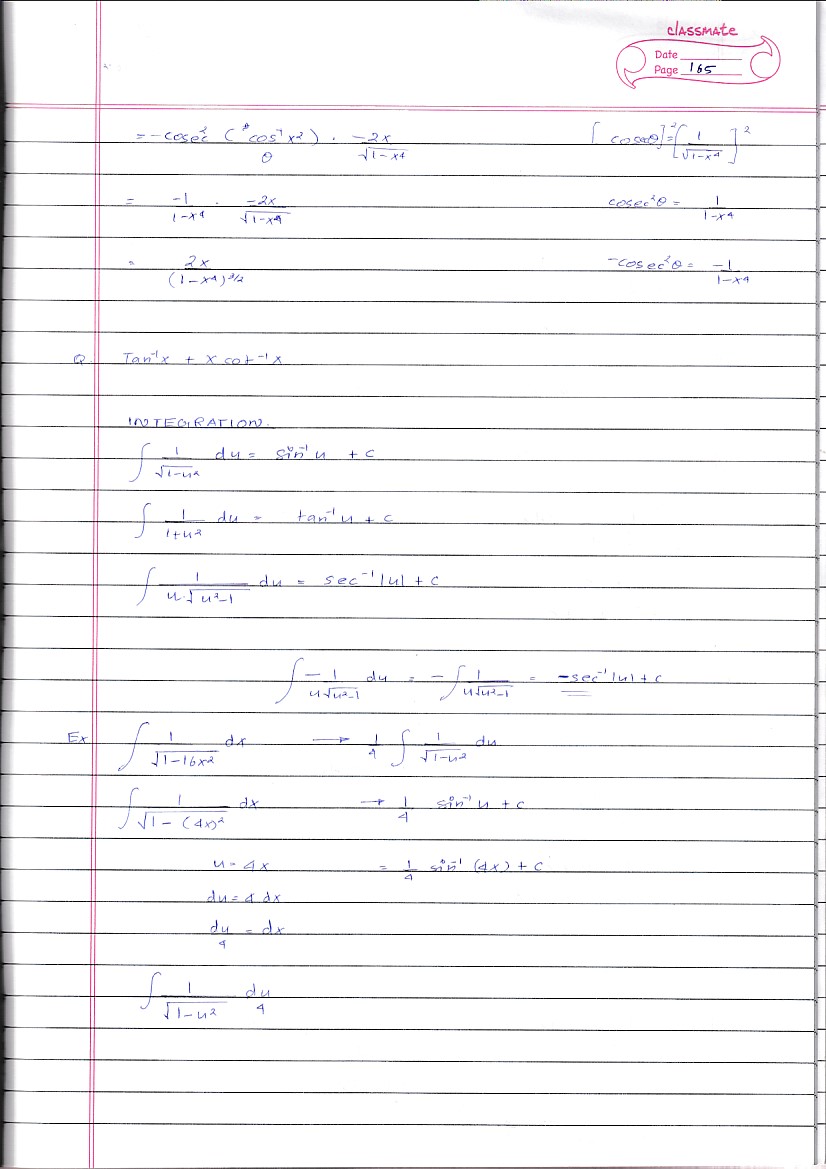 classmate
Date
Page 165
= -cosec² (cos⁻¹x²) · -2x/√1-x⁴ [cosecθ]² = [1/√1-x⁴]²
θ
= -1/1-x⁴ · -2x/√1-x⁴ cosec²θ = 1/1-x⁴
= 2x/(1-x⁴)^3/2 -cosec²θ = -1/1-x⁴
Q Tan⁻¹x + x cot⁻¹x
INTEGRATION.
∫ 1/√1-u² du = sin⁻¹u + c
∫ 1/1+u² du = tan⁻¹u + c
∫ 1/u·√u²-1 du = sec⁻¹|u| + c
∫ -1/u√u²-1 du = -∫ 1/u√u²-1 = -sec⁻¹|u| + c
Ex ∫ 1/√1-16x² dx → 1/4 ∫ 1/√1-u² du
∫ 1/√1-(4x)² dx → 1/4 sin⁻¹u + c
u = 4x = 1/4 sin⁻¹(4x) + c
du = 4 dx
du/4 = dx
∫ 1/√1-u² du/4